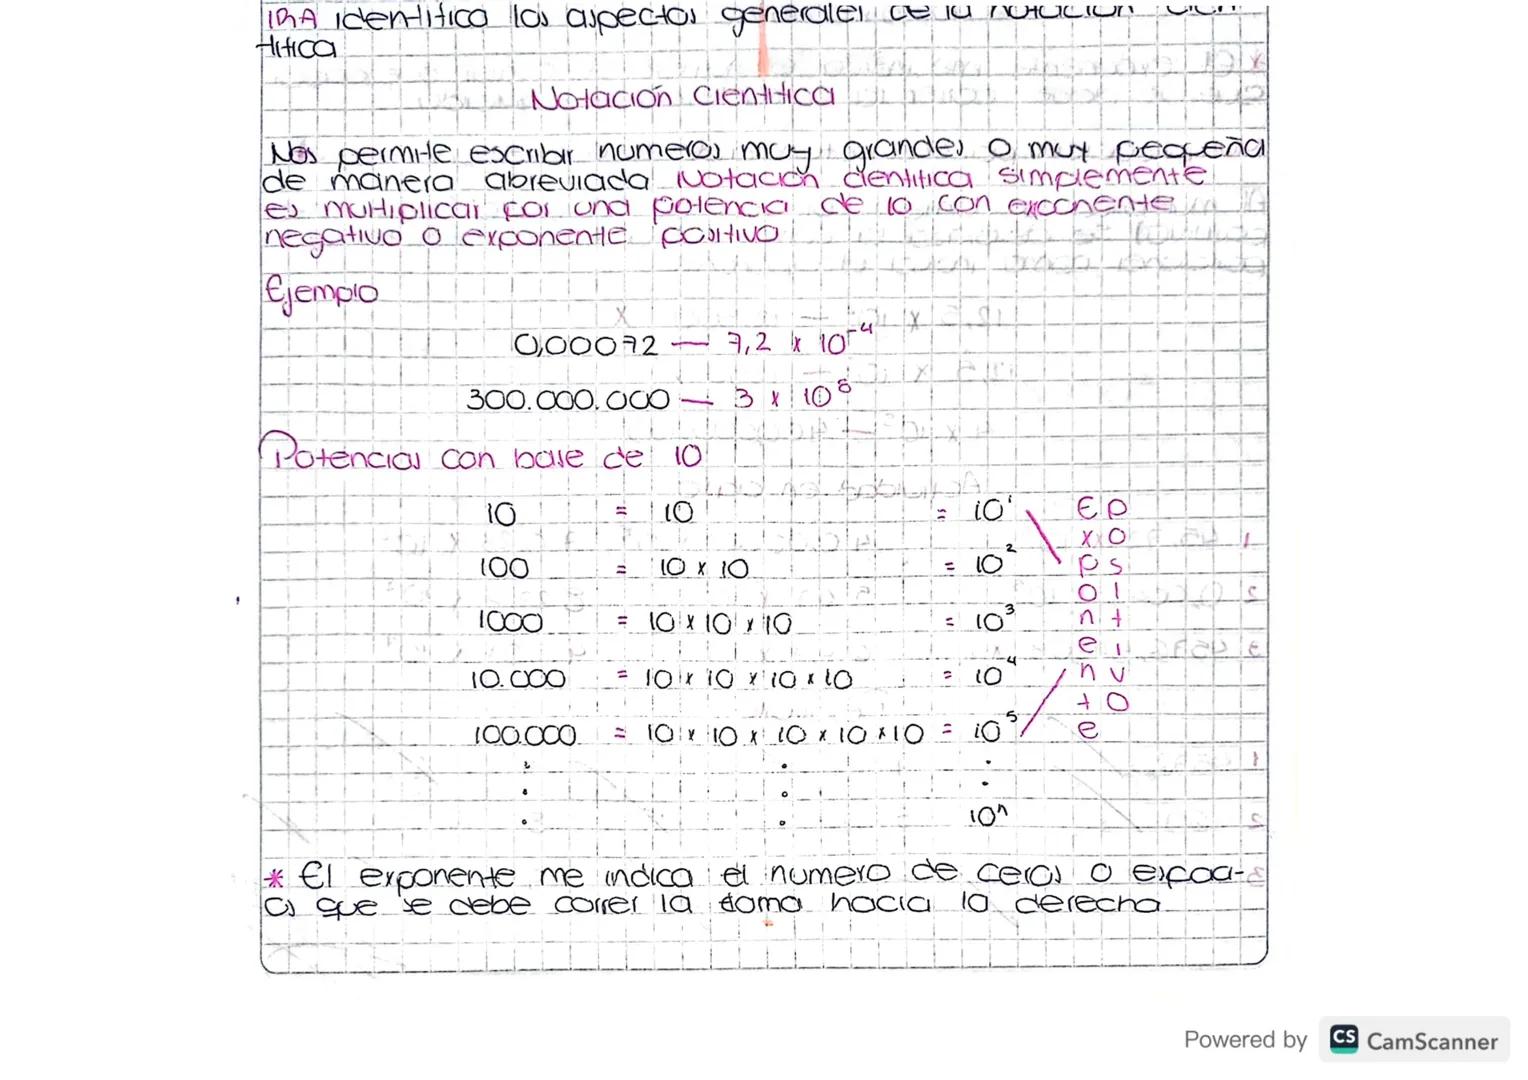 IDA identifica los aspectos generales de la notación cien-
tifica
Notación Cientifica
Nos permite escribir numeros muy grandes o muy pequeña
de manera abreviada Notación cientifica simplemente
es multiplicar por una potencia de 10 con exponente
negativo o exponente positivo
Ejemplo
0,00072 — 7,2 x 10⁻⁴
300.000.000 — 3 x 10⁸
Potencias con base de 10
10 = 10 = 10¹
100 = 10 x 10 = 10²
1000 = 10 x 10 x 10 = 10³
10.000 = 10 x 10 x 10 x 10 = 10⁴
100.000 = 10 x 10 x 10 x 10 x 10 = 10⁵
10ⁿ
Exponente
Positivo
* El exponente me indica el numero de ceros o espaci-
os que se debe correr la coma hacia la derecha
Powered by CS CamScanner